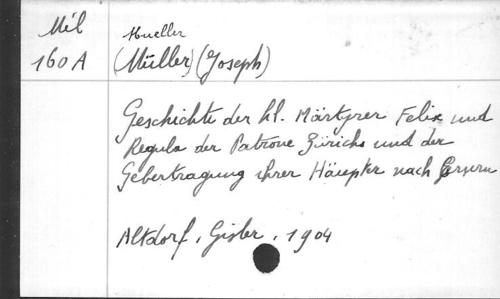 Mél
Mueller
160 A
(Müller) (Joseph)
Geschichte der hl. Märtyrer Felix und
Regula der Patrone Zürichs und der
Gebertragung ihrer Häupter nach
Altdorf, Gisler, 1904